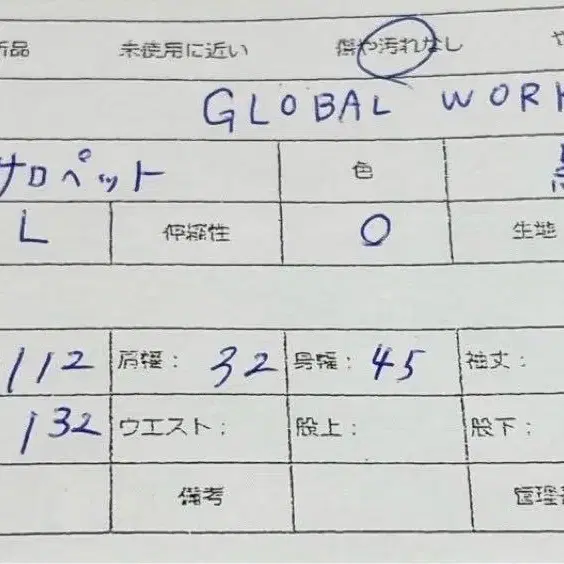 新品 未使用に近い 傷や汚れなし や
GLOBAL WORK
サロペット 色 黒
L 伸縮性 O 生地
112 肩幅: 32 身幅: 45 袖丈:
132 ウエスト: 股上: 股下:
備考 管理番